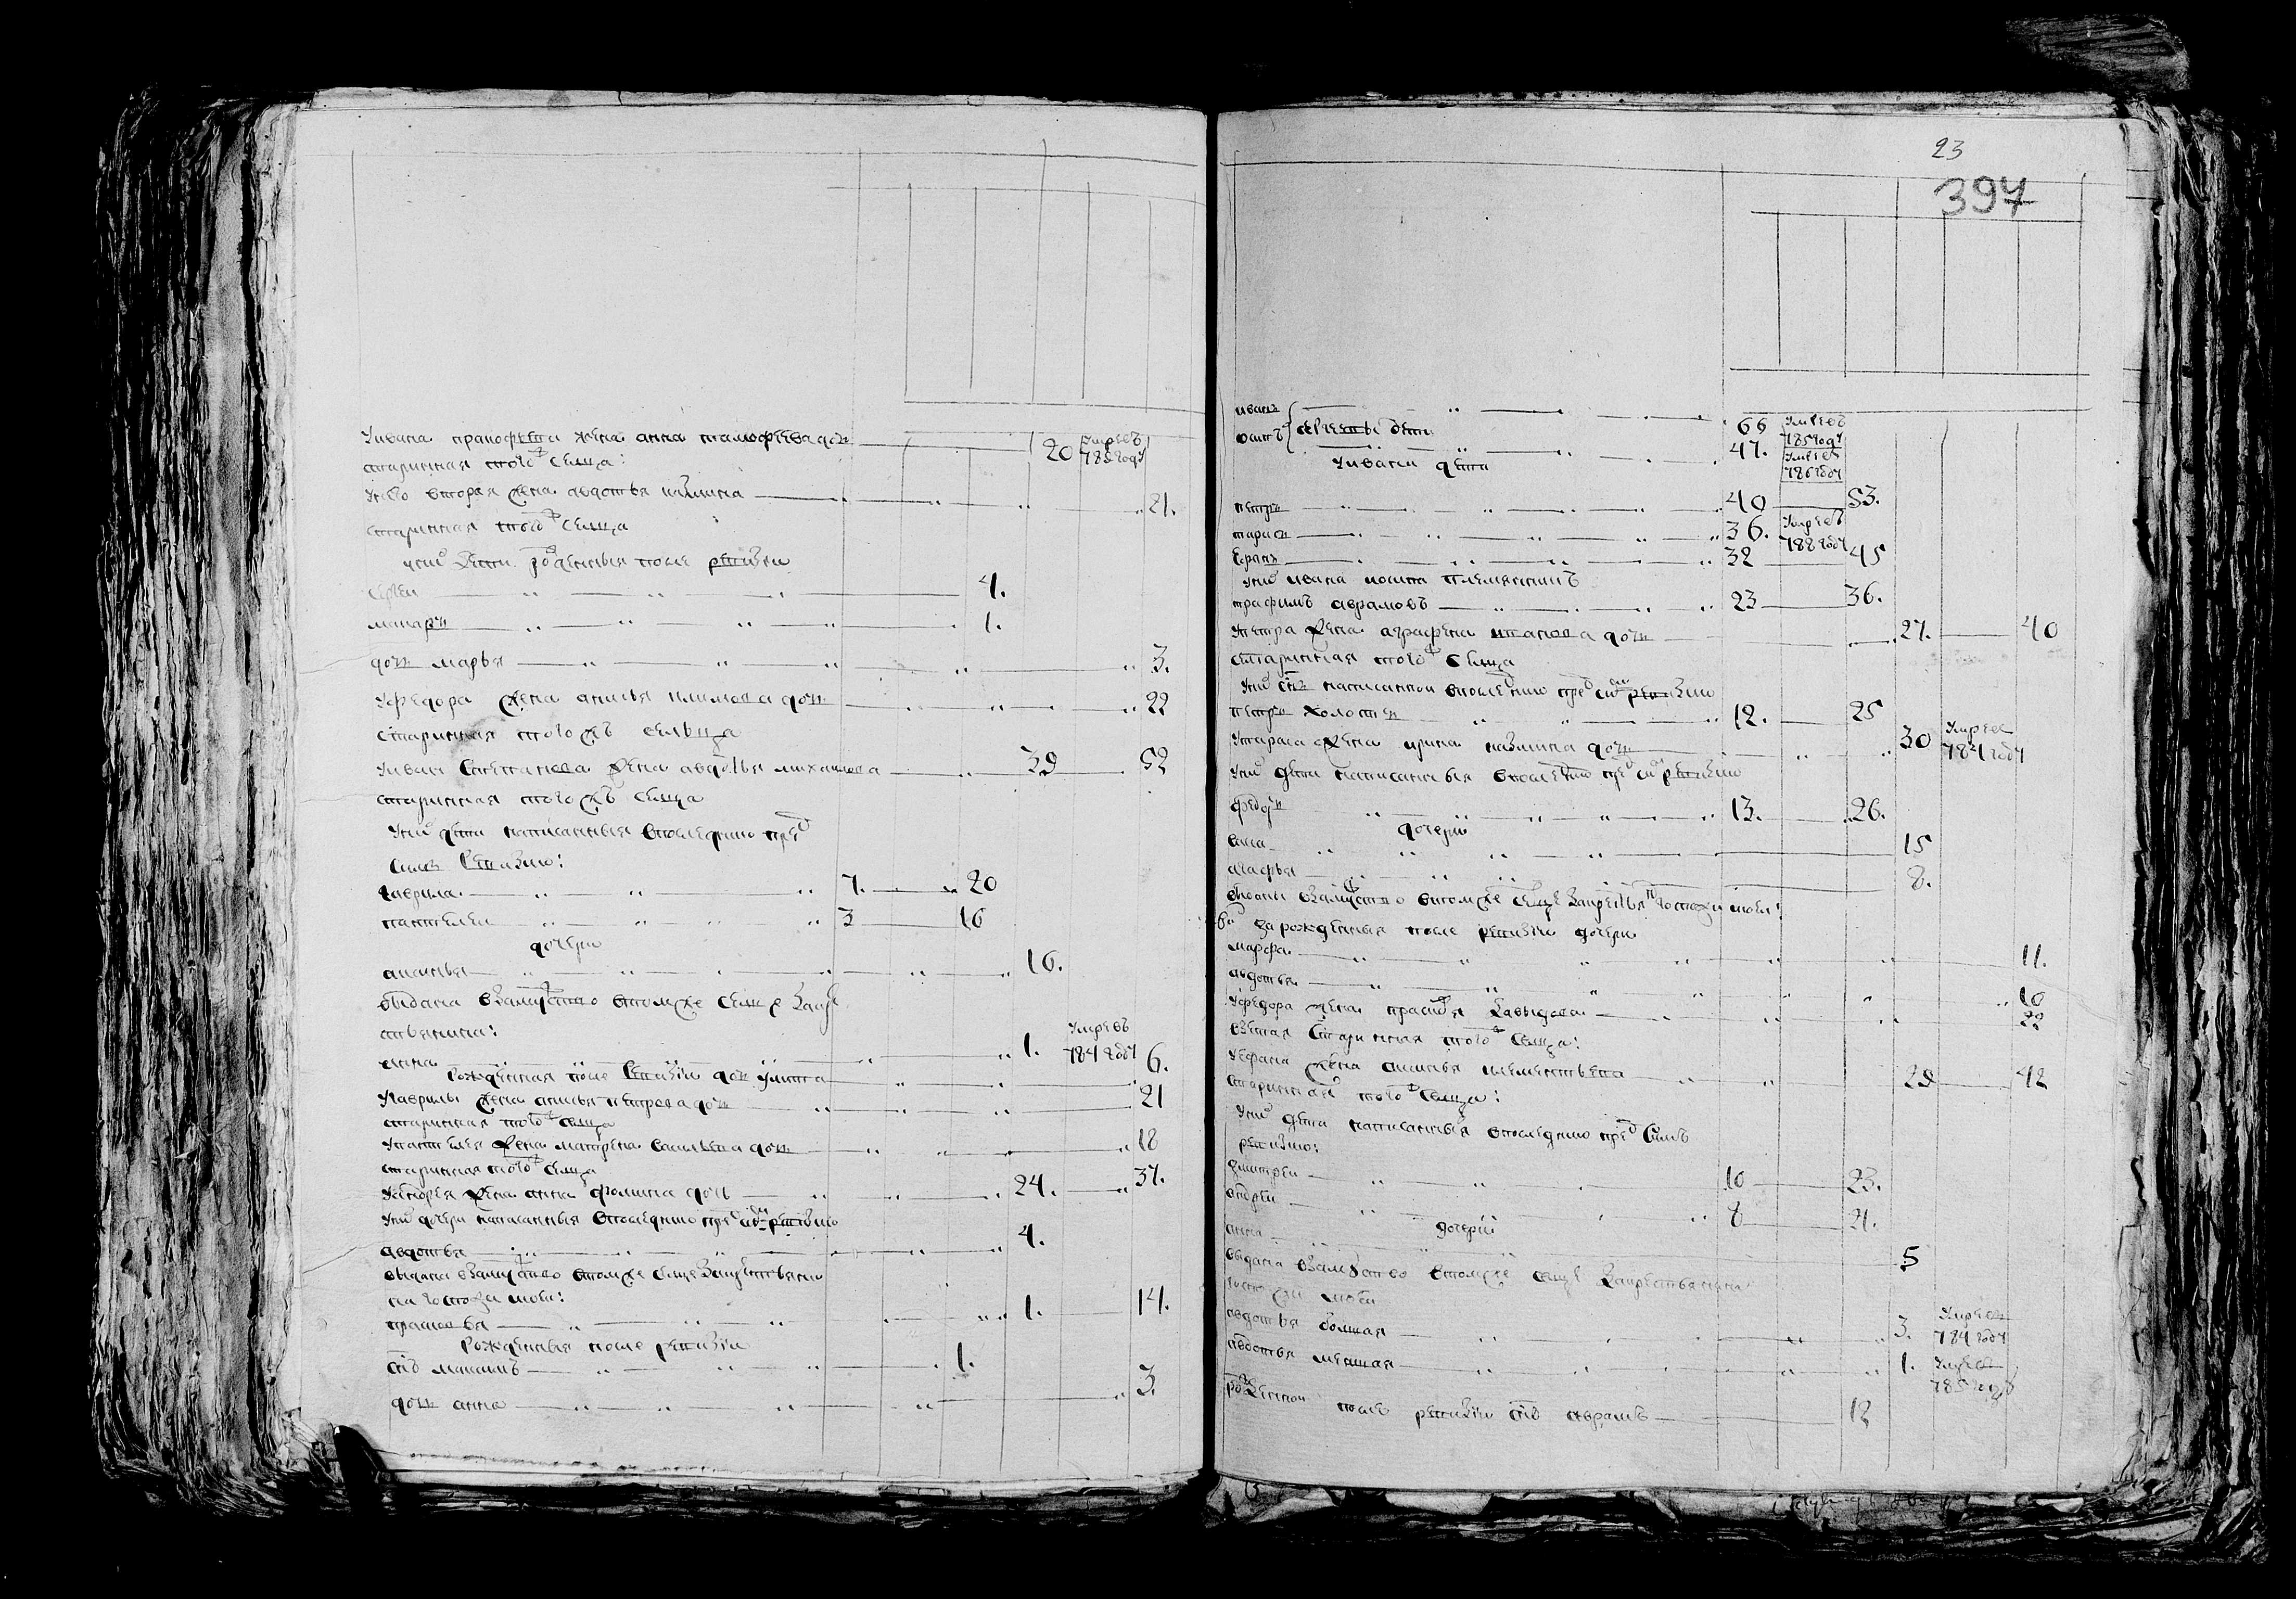 У ивана прокофьева жена анна тимофеева дочь 20 умре въ 785 году
старинная того ж селца:
У него вторая жена авдотья 21.
старинная того ж селца
у них дети рожденныя после ревизии
сергеи 4.
макаръ 1.
дочь марья 3.
У федора жена анисья климова дочь 22
старинная того жъ сельца
У ивана степанова жена авдотья михаилова 39 52
старинная того жъ селца
У них дети написанныя в последнюю пред
симъ ревизию:
гаврила 7. 20
пантелеи 3 16
дочери
анисья 16.
выдана в замужство в томже селце за крес
стьянина:
анна 1. умре въ 784 году
рожденная после ревизии дочь улита 6.
У гаврилы жена анисья петрова дочь 21
старинная того ж селца
У пантелея жена матрена васильева дочь 18
старинная того ж селца
У андрея жена анна фомина дочь 24. 37.
У них дочери написанныя в последнюю пред сим ревизию
авдотья 4.
выдана в замужство в томже селце за крестьяни
на госпожи моеи:
прасковья 1. 14.
рожденныя после ревизии
сынъ 1.
дочь анна 3.
23
397
иванъ 66 умре въ 785 году
осипъ 47. умре въ 786 году
сергеевы дети
У ивана дети
петръ 40 53.
тарасъ 36. умре въ 782 году
ефимъ 32 45
У них ивана иосипа племянникъ
трафимъ аврамовъ 23 36.
У петра жена аграфена иванова дочь 27. 40
старинная того ж селца
У них сынъ написаннои в последнюю пред сим ревизию
петръ холостъ 12. 25
У тараса жена ирина дочь 30 умре въ 784 году
У них дети написанныя в последнюю пред сим ревизию
федоръ 13. 26.
дочери
анна 15
агафья 8.
выданы в замужство в томже селце за крестьян госпожи моеи:
рожденныя после ревизии дочери
марфа 11.
авдотья 10
У федора жена прасковья давыдова 22
взятая старинная того ж селца:
У ефима жена анисья 29 42
старинная того ж селца:
У них дети написанныя в последнюю пред симъ
ревизию:
дмитреи 10 23.
андреи 8 21.
дочери
анна 5
выдана в замужство в томже селце за крестьянина
госпожи моеи
авдотья болшая 3. умре въ 784 году
авдотья меншая 1. умре въ 785 году
рожденнои после ревизии сынъ аврамъ 12